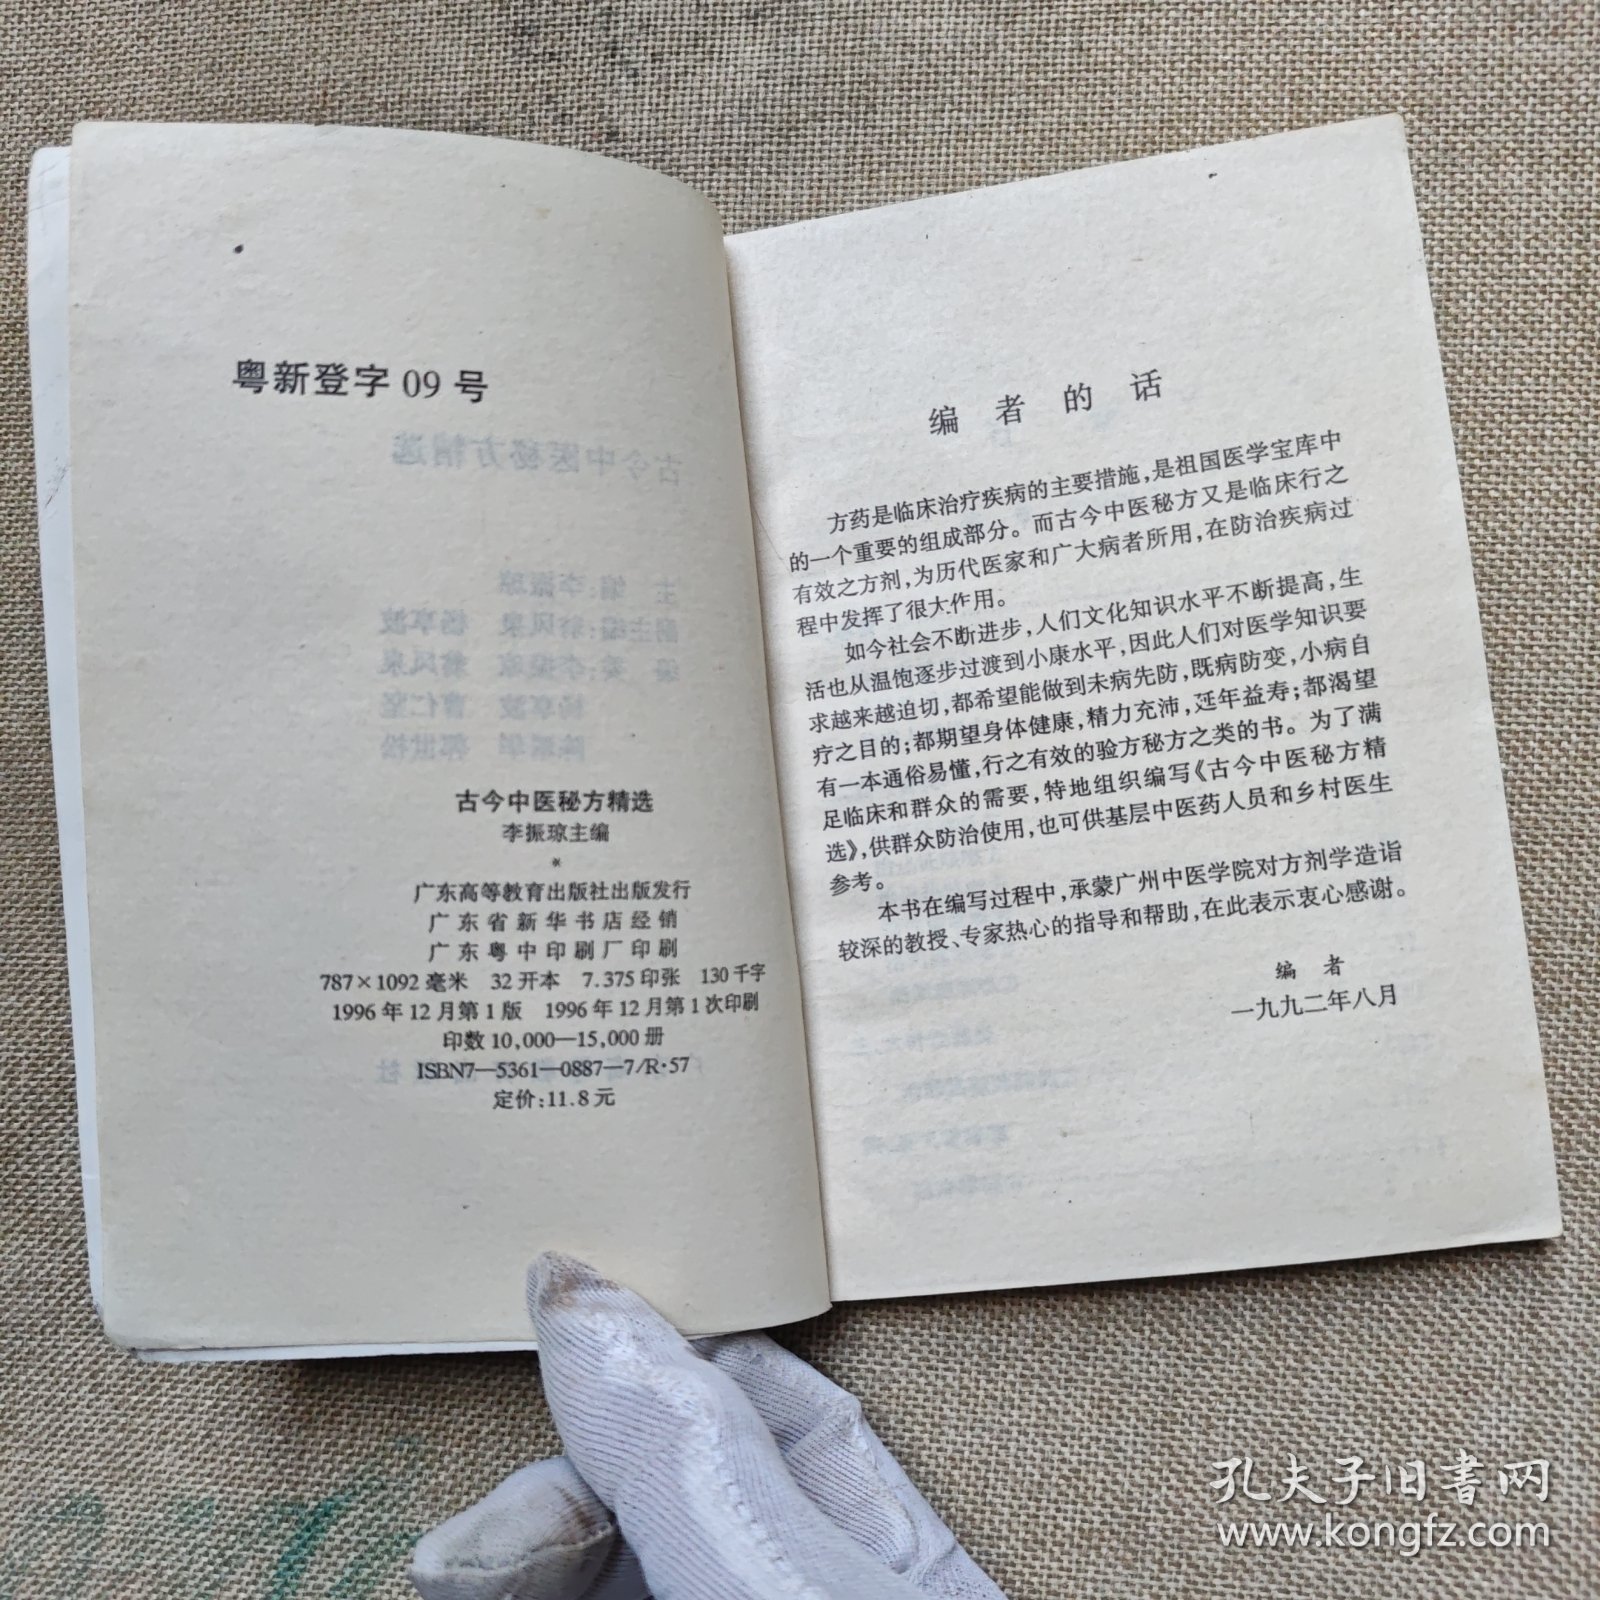 粤新登字 09 号
古今中医秘方精选
李振琼主编
*
广东高等教育出版社出版发行
广东省新华书店经销
广东粤中印刷厂印刷
787×1092毫米 32开本 7.375印张 130千字
1996年12月第1版 1996年12月第1次印刷
印数10,000—15,000册
ISBN7—5361—0887—7/R·57
定价:11.8元
编者的话
方药是临床治疗疾病的主要措施,是祖国医学宝库中
的一个重要的组成部分。而古今中医秘方又是临床行之
有效之方剂,为历代医家和广大病者所用,在防治疾病过
程中发挥了很大作用。
如今社会不断进步,人们文化知识水平不断提高,生
活也从温饱逐步过渡到小康水平,因此人们对医学知识要
求越来越迫切,都希望能做到未病先防,既病防变,小病自
疗之目的;都期望身体健康,精力充沛,延年益寿;都渴望
有一本通俗易懂,行之有效的验方秘方之类的书。为了满
足临床和群众的需要,特地组织编写《古今中医秘方精
选》,供群众防治使用,也可供基层中医药人员和乡村医生
参考。
本书在编写过程中,承蒙广州中医学院对方剂学造诣
较深的教授、专家热心的指导和帮助,在此表示衷心感谢。
编者
一九九二年八月
孔夫子旧书网
www.kongfz.com